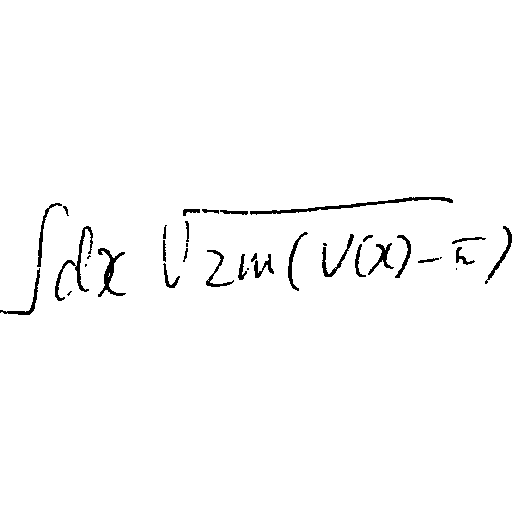 ∫dx √(2m(V(x)-E))